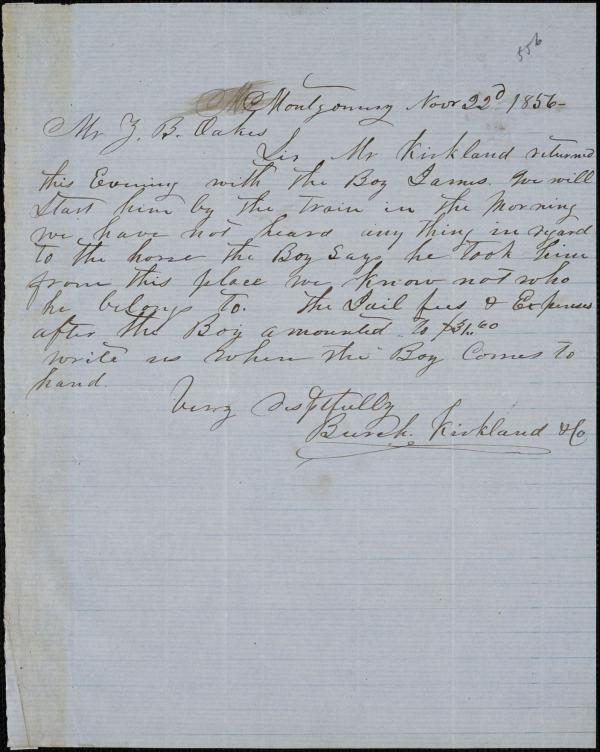 556
Montgomery Novr 22d 1856-
Mr Z. B. Oakes
Sir Mr Kirkland returned
this Evening with the Boy James. We will
Start him by the train in the Morning
we have not heard any thing in regard
to the horse the Boy Says he took him
from this place we know not who
he belongs to. The Jail fees & Expenses
after the Boy amounted to $31.60
write us when the Boy Comes to
hand.
Very Resptfully
Burch. Kirkland & Co